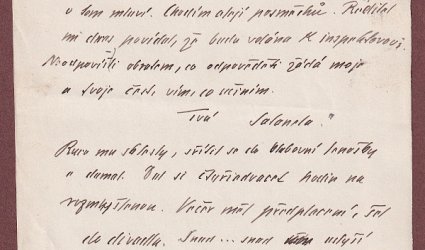 o tom mluví. Chodím alejí posměchů. Ředitel
mi dnes povídal, že budu volána k inspektorovi.
Neodpovíš-li obratem, co odpovědět žádá moje
a Tvoje čest, vím, co učiním.
Tvá
Ruce mu sklesly, svezl se do klubovní lenošky
a dumal. Dal si čtyřiadvacet hodin na
rozmyšlenou. Večer měl předplacení, šel
do divadla. Snad ... snad uslyší